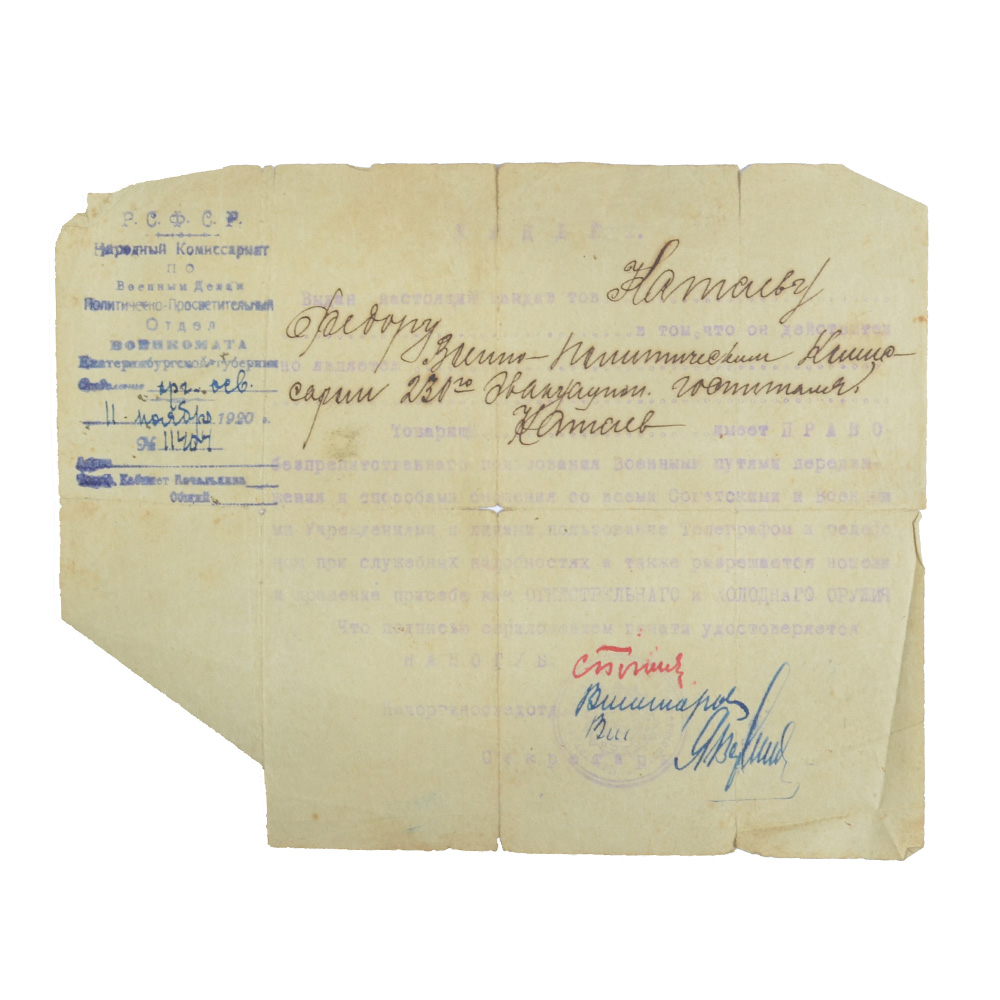 Р. С. Ф. С. Р.
Народный Комиссариат
ПО
Военным Делам
Политично-Просветительный
Отдел
ВОЕНКОМАТА
Екатеринбургской Губернии
Отделение орг.-осв.
11 ноября 1920 г.
№
Кабинет Начальника
Общий
МАНДАТ.
Выдан настоящий мандат тов. Катаеву
Федору в том что он действител
но является Военно-Политическим Комис-
саром 230го Эвакуацион. госпиталя.
Товарищ Катаев имеет ПРАВО
безпрепятственнаго пользования Военными путями передви-
жения и способами сношения со всеми Советскими и Военны
ми Учреждениями и лицами пользование Телеграфом и телефо
ном при служебных надобностях а также разрешается ношени
и хранение присебе как ОГНЕСТРЕЛЬНАГО и ХОЛОДНАГО ОРУЖИЯ
Что подписью сприложением печати удостоверяется
Секретарь